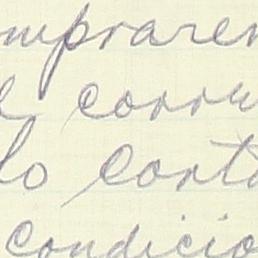 mpraren
e corru
lo corta
condicio